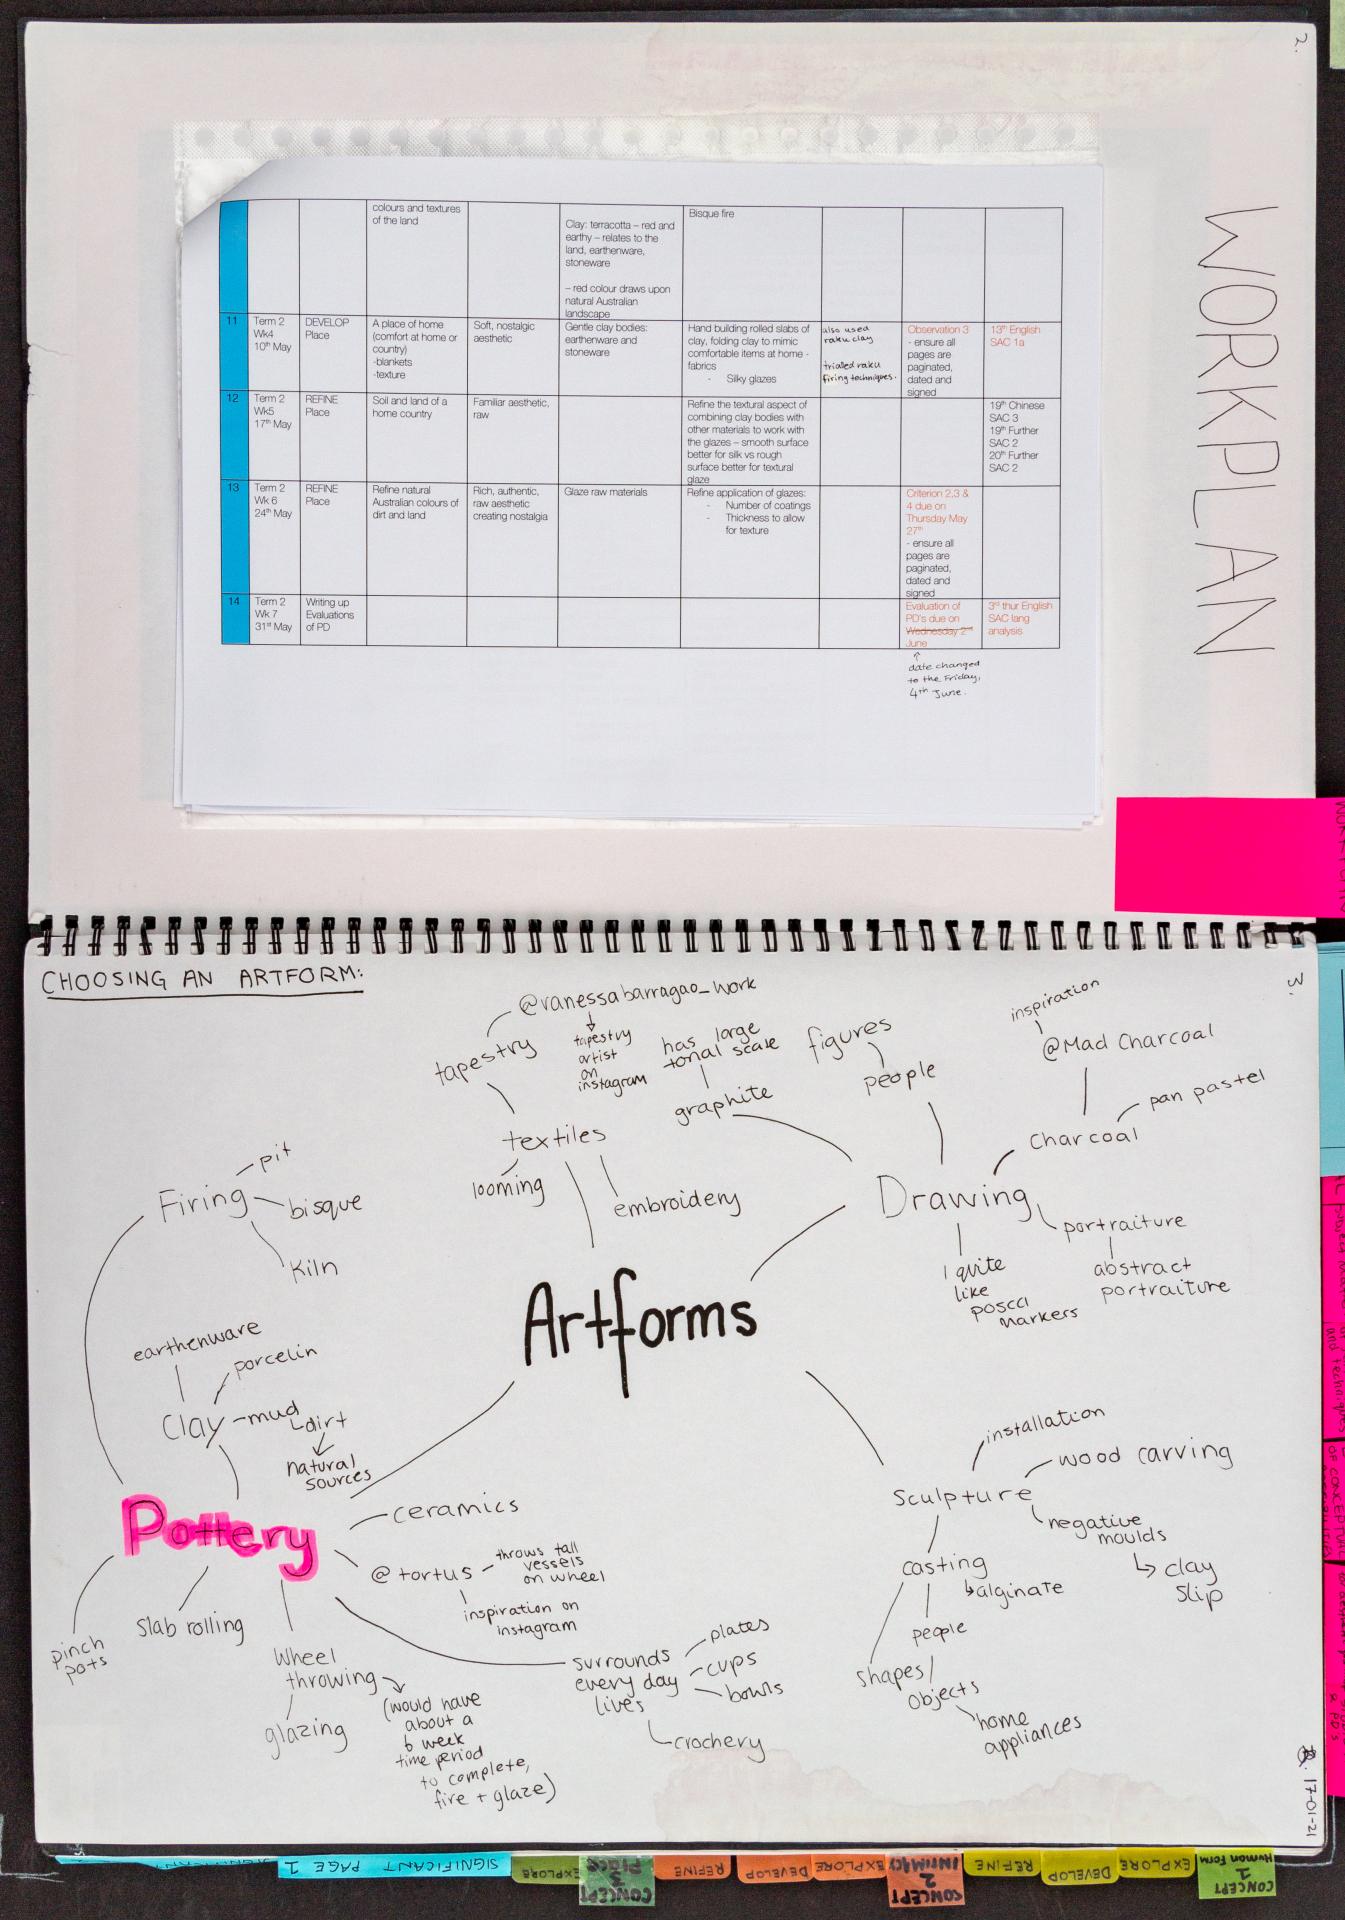 2.
WORKPLAN
colours and textures
of the land
Clay: terracotta – red and
earthy – relates to the
land, earthenware,
stoneware
– red colour draws upon
natural Australian
landscape
Bisque fire
11
Term 2
Wk4
10th May
DEVELOP
Place
A place of home
(comfort at home or
country)
-blankets
-texture
Soft, nostalgic
aesthetic
Gentle clay bodies:
earthenware and
stoneware
Hand building rolled slabs of
clay, folding clay to mimic
comfortable items at home -
fabrics
- Silky glazes
also used
raku clay
trialled raku
firing techniques.
Observation 3
- ensure all
pages are
paginated,
dated and
signed
13th English
SAC 1a
12
Term 2
Wk5
17th May
REFINE
Place
Soil and land of a
home country
Familiar aesthetic,
raw
Refine the textural aspect of
combining clay bodies with
other materials to work with
the glazes – smooth surface
better for silk vs rough
surface better for textural
glaze
19th Chinese
SAC 3
19th Further
SAC 2
20th Further
SAC 2
13
Term 2
Wk 6
24th May
REFINE
Place
Refine natural
Australian colours of
dirt and land
Rich, authentic,
raw aesthetic
creating nostalgia
Glaze raw materials
Refine application of glazes:
- Number of coatings
- Thickness to allow
for texture
Criterion 2,3 &
4 due on
Thursday May
27th
- ensure all
pages are
paginated,
dated and
signed
14
Term 2
Wk 7
31st May
Writing up
Evaluations
of PD
Evaluation of
PD's due on
Wednesday 2nd
June
3rd thur English
SAC lang
analysis
date changed
to the Friday,
4th June.
CHOOSING AN ARTFORM:
3.
@vanessabarragao_work
tapestry
tapestry
artist
on
instagram
has large
tonal scale
graphite
figures
people
inspiration
@Mad Charcoal
pan pastel
Charcoal
textiles
looming
embroidery
Drawing
portraiture
abstract
portraiture
I quite
like
posca
markers
Firing
pit
bisque
Kiln
Artforms
earthenware
porcelin
Clay
mud
dirt
natural
sources
Pottery
ceramics
@tortus
throws tall
vessels
on wheel
inspiration on
instagram
pinch
pots
Slab rolling
Wheel
throwing
glazing
(would have
about a
6 week
time period
to complete,
fire + glaze)
surrounds
every day
lives
plates
cups
bowls
crochery
Sculpture
installation
wood carving
negative
moulds
clay
slip
casting
alginate
people
shapes/
objects
home
appliances
17-01-21
SIGNIFICANT PAGE 1
EXPLORE
CONCEPT
3
PLACE
REFINE
DEVELOP
EXPLORE
CONCEPT
2
INTIMACY
REFINE
DEVELOP
EXPLORE
CONCEPT
1
Human Form